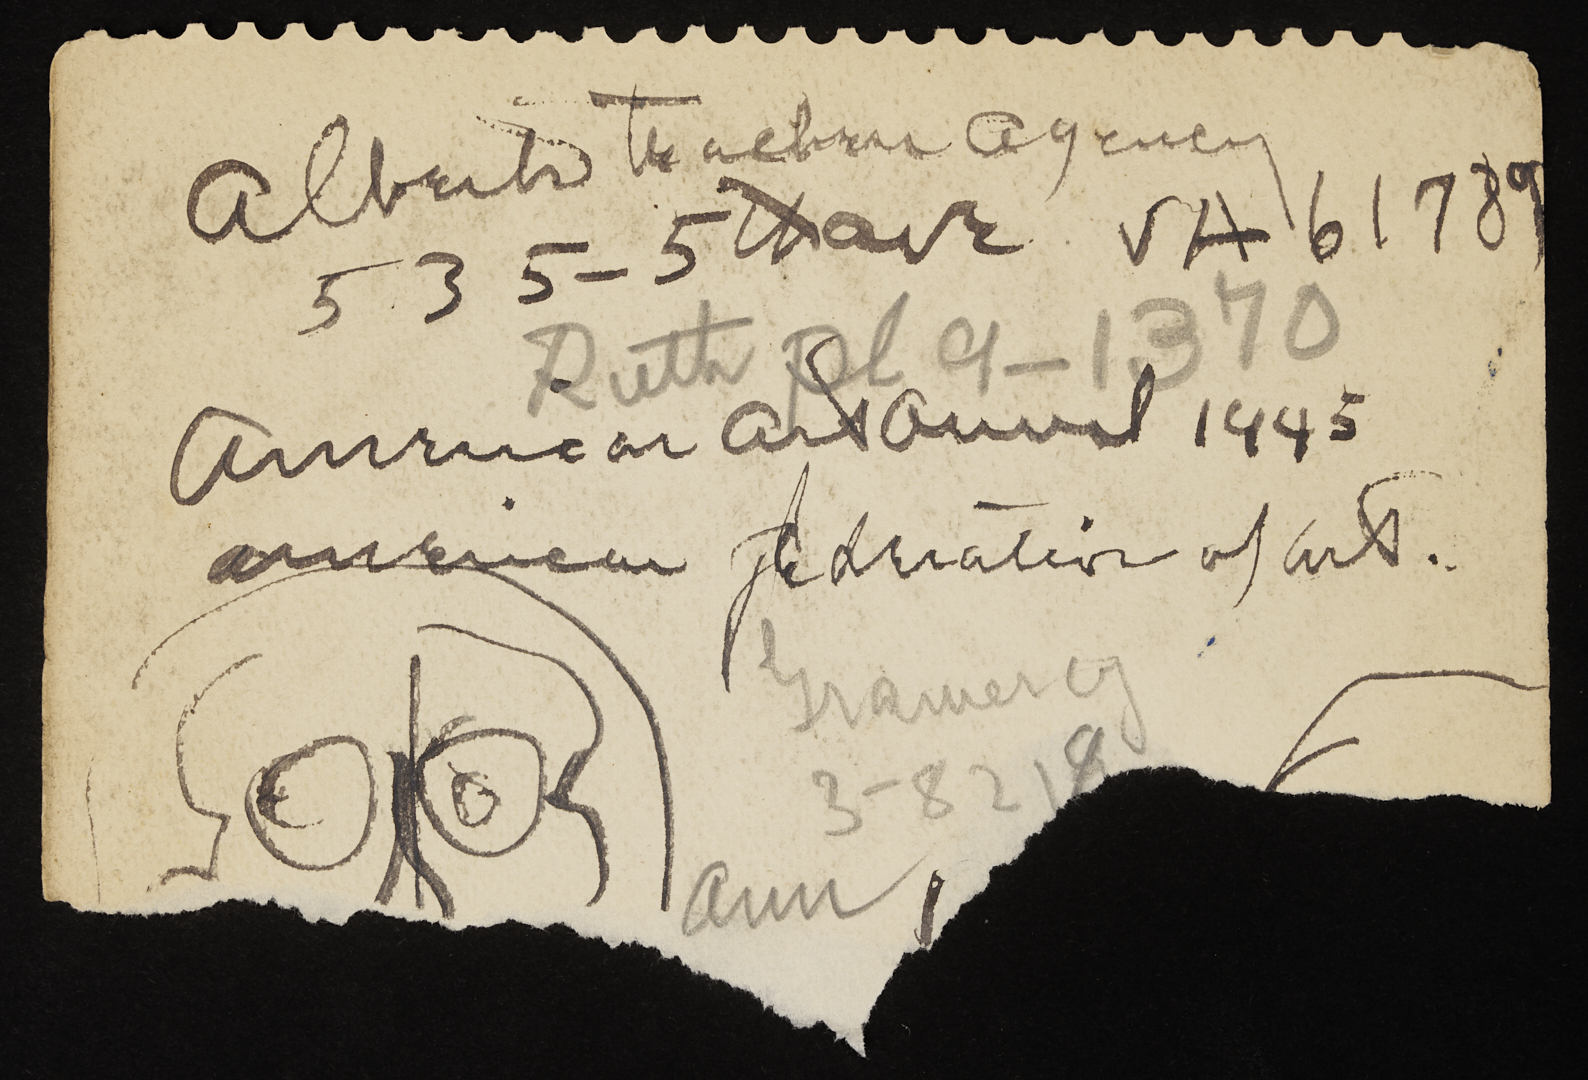 Alberts Teachers Agency
535-5th ave VA 61789
Ruth pl 9-1370
American Art Annual 1945
american federation of arts.
Gramercy
3-8218
ann